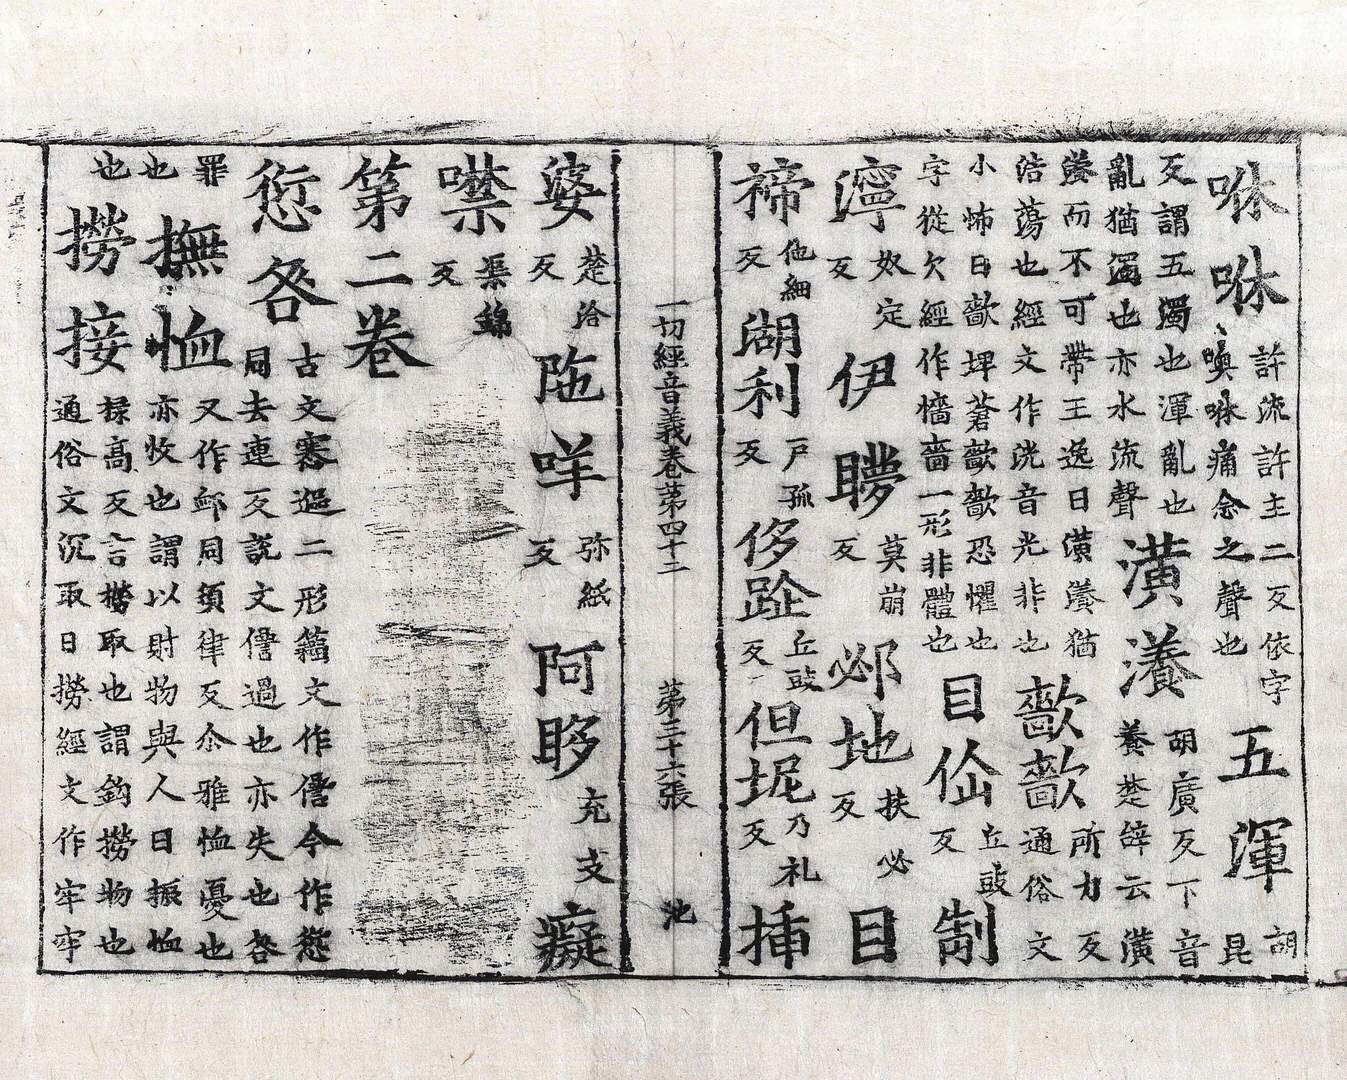 咻咻許流許主二反依字
㗱咻痛念之聲也
五渾胡昆
反謂五濁也渾亂也
亂猶濁也亦水流聲
潢瀁胡廣反下音
養楚辭云潢
瀁而不可帶王逸曰潢瀁猶
浩蕩也經文作洸音光非也
歡歡所力反
通俗文
小怖曰歡埤蒼歡歡恐懼也
字從欠經作檣嗇一形非體也
目佡丘豉反
制
濘奴定反
伊𦗒莫崩反
邲地扶必反
目
禘他細反
湖利戶孤反
侈跧丘豉反
但坭乃礼反
揷
一切經音義卷第四十三
第三十六張
池
婆楚洽反
陁咩弥紙反
阿眵充支反
癡
噤渠錦反
第二卷
愆咎古文寋遄二形籀文作僁今作愆
同去連反說文僁過也亦失也咎
罪也
撫恤又作卹同須律反尒雅恤憂也
亦收也謂以財物與人曰振恤
也
撈接祿高反言撈取也謂鈎撈物也
通俗文沉取曰撈經文作牢牢